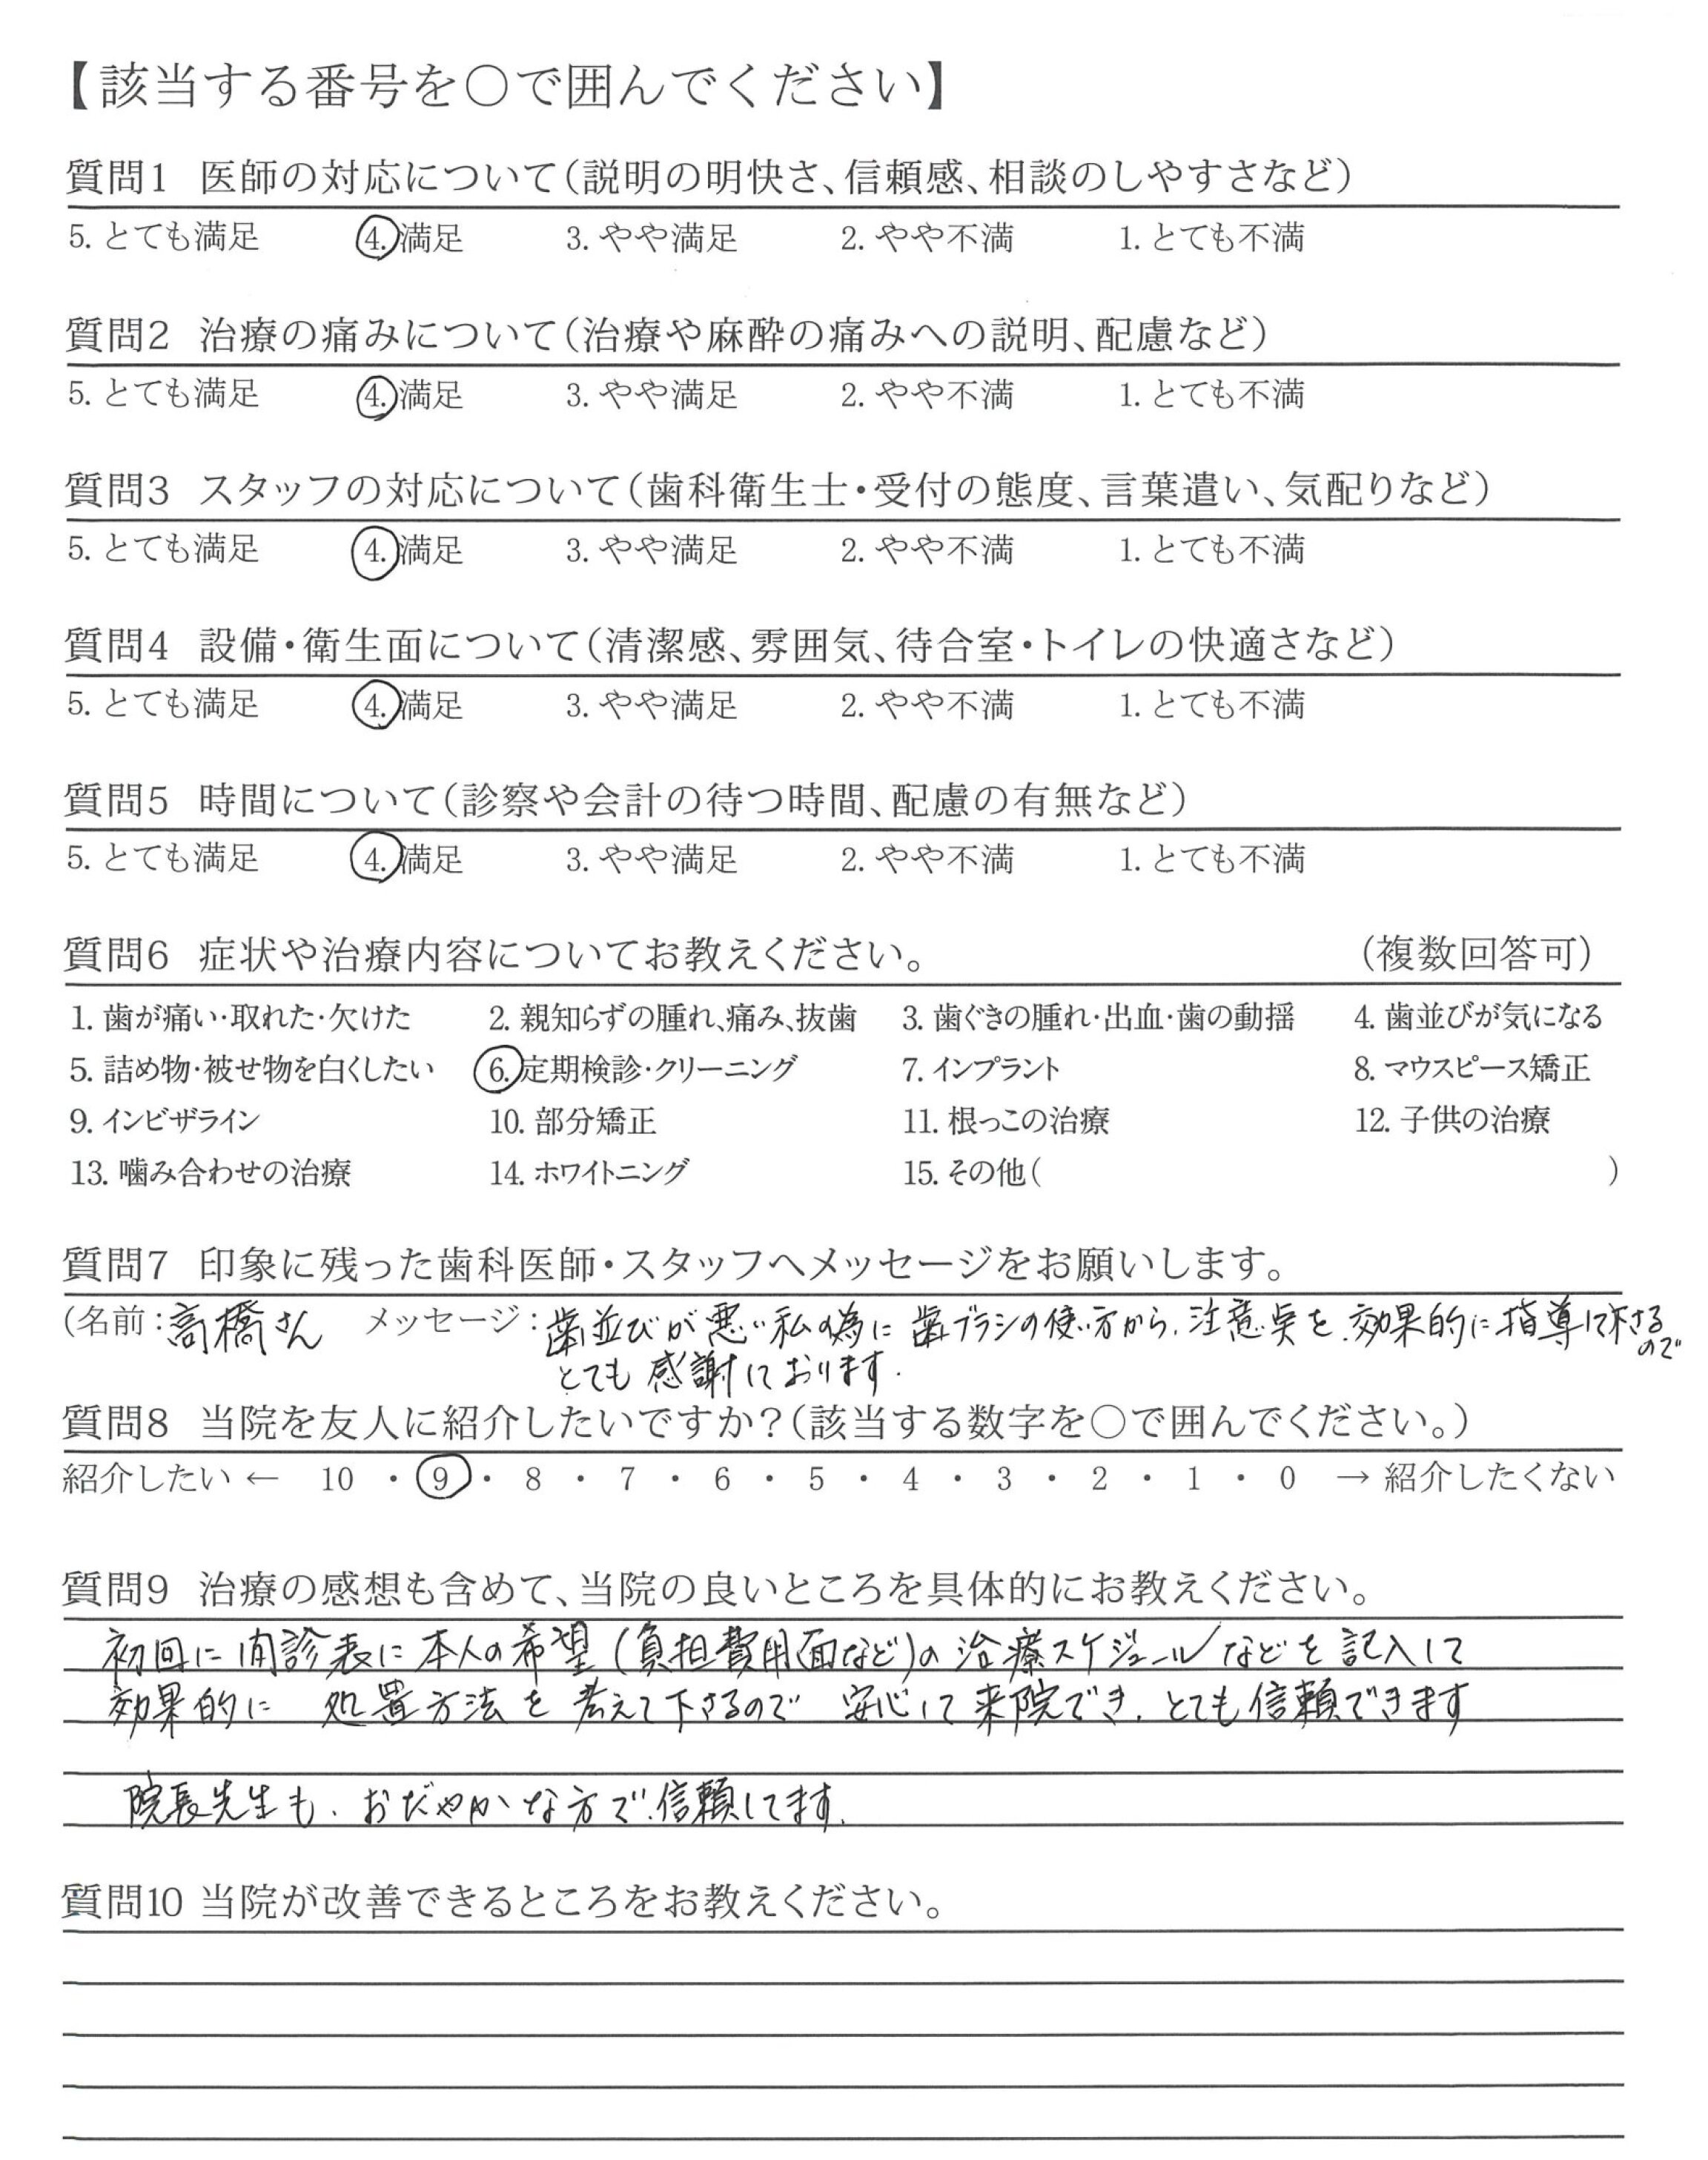 【該当する番号を○で囲んでください】
質問1 医師の対応について（説明の明快さ、信頼感、相談のしやすさなど）
5. とても満足 4. 満足 3. やや満足 2. やや不満 1. とても不満
質問2 治療の痛みについて（治療や麻酔の痛みへの説明、配慮など）
5. とても満足 4. 満足 3. やや満足 2. やや不満 1. とても不満
質問3 スタッフの対応について（歯科衛生士・受付の態度、言葉遣い、気配りなど）
5. とても満足 4. 満足 3. やや満足 2. やや不満 1. とても不満
質問4 設備・衛生面について（清潔感、雰囲気、待合室・トイレの快適さなど）
5. とても満足 4. 満足 3. やや満足 2. やや不満 1. とても不満
質問5 時間について（診察や会計の待つ時間、配慮の有無など）
5. とても満足 4. 満足 3. やや満足 2. やや不満 1. とても不満
質問6 症状や治療内容についてお教えください。 （複数回答可）
1. 歯が痛い・取れた・欠けた 2. 親知らずの腫れ、痛み、抜歯 3. 歯ぐきの腫れ・出血・歯の動揺 4. 歯並びが気になる
5. 詰め物・被せ物を白くしたい 6. 定期検診・クリーニング 7. インプラント 8. マウスピース矯正
9. インビザライン 10. 部分矯正 11. 根っこの治療 12. 子供の治療
13. 噛み合わせの治療 14. ホワイトニング 15. その他（ ）
質問7 印象に残った歯科医師・スタッフへメッセージをお願いします。
（名前：高橋さん メッセージ：歯並びが悪い私の為に歯ブラシの使い方から、注意点を、効果的に指導して下さる
ので
とても感謝しております。
質問8 当院を友人に紹介したいですか？（該当する数字を○で囲んでください。）
紹介したい ← 10 ・ 9 ・ 8 ・ 7 ・ 6 ・ 5 ・ 4 ・ 3 ・ 2 ・ 1 ・ 0 → 紹介したくない
質問9 治療の感想も含めて、当院の良いところを具体的にお教えください。
初回に問診表に本人の希望（負担費用面など）の治療スケジュールなどを記入して
効果的に 処置方法を考えて下さるので 安心して来院でき、とても信頼できます
院長先生も、おだやかな方で、信頼してます。
質問10 当院が改善できるところをお教えください。